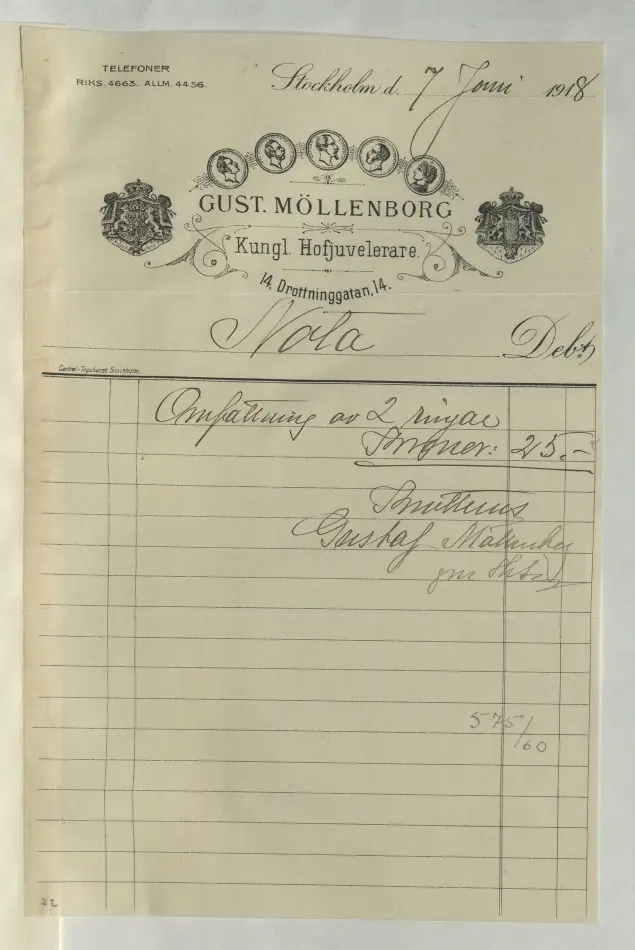 TELEFONER
RIKS. 4663. ALLM. 44 56.
Stockholm d. 7 Juni 1918
GUST. MÖLLENBORG
Kungl. Hofjuvelerare.
14, Drottninggatan, 14.
Nota Debt
Central-Tryckeriet Stockholm.
Omfattning av 2 ringar
Kronor: 25.-
Kvitteras
Gustaf Möllenborg
575/60
22